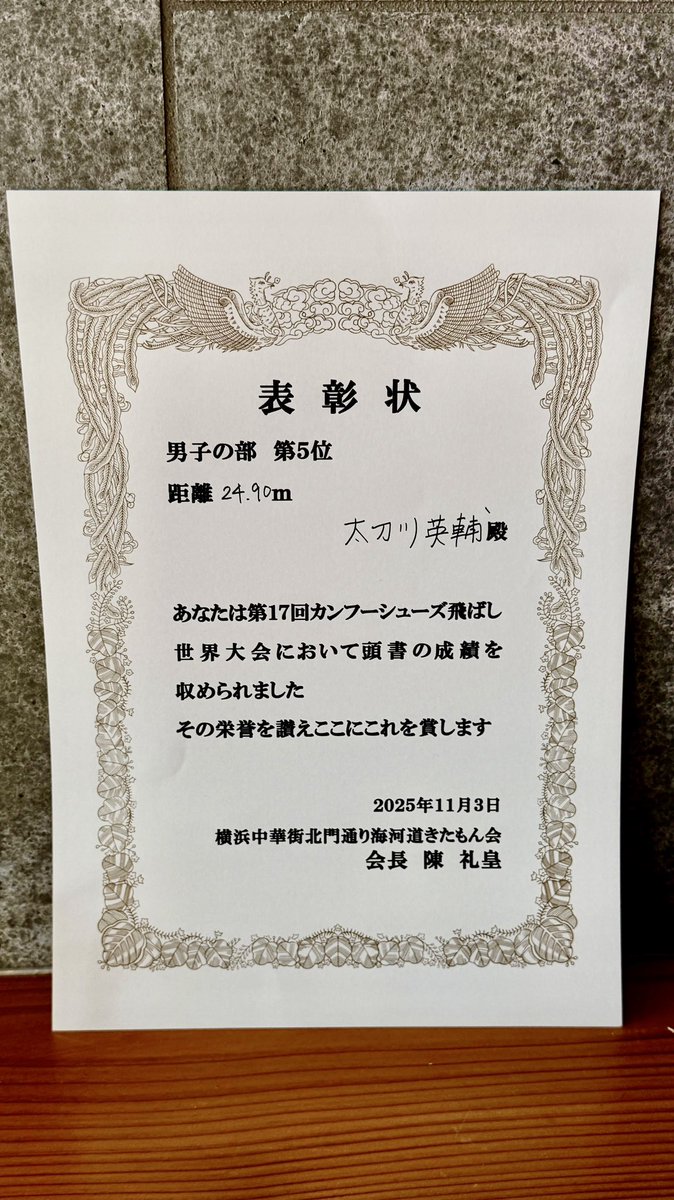 表彰状
男子の部 第5位
距離 24.90m
太刀川英輔 殿
あなたは第17回カンフーシューズ飛ばし
世界大会において頭書の成績を
収められました
その栄誉を讃えここにこれを賞します
2025年11月3日
横浜中華街北門通り海河道きたもん会
会長 陳 礼皇